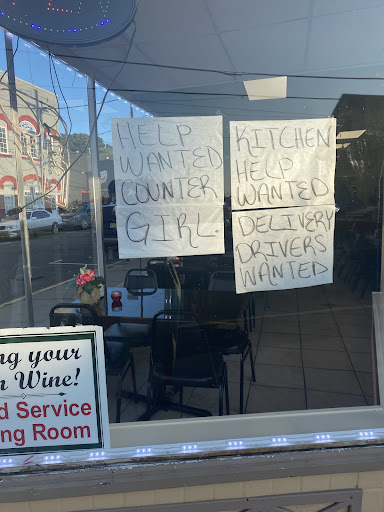 HELP
WANTED
COUNTER
GIRL.
KITCHEN
HELP
WANTED
DELIVERY
DRIVERS
WANTED
ng your
n Wine!
d Service
ng Room